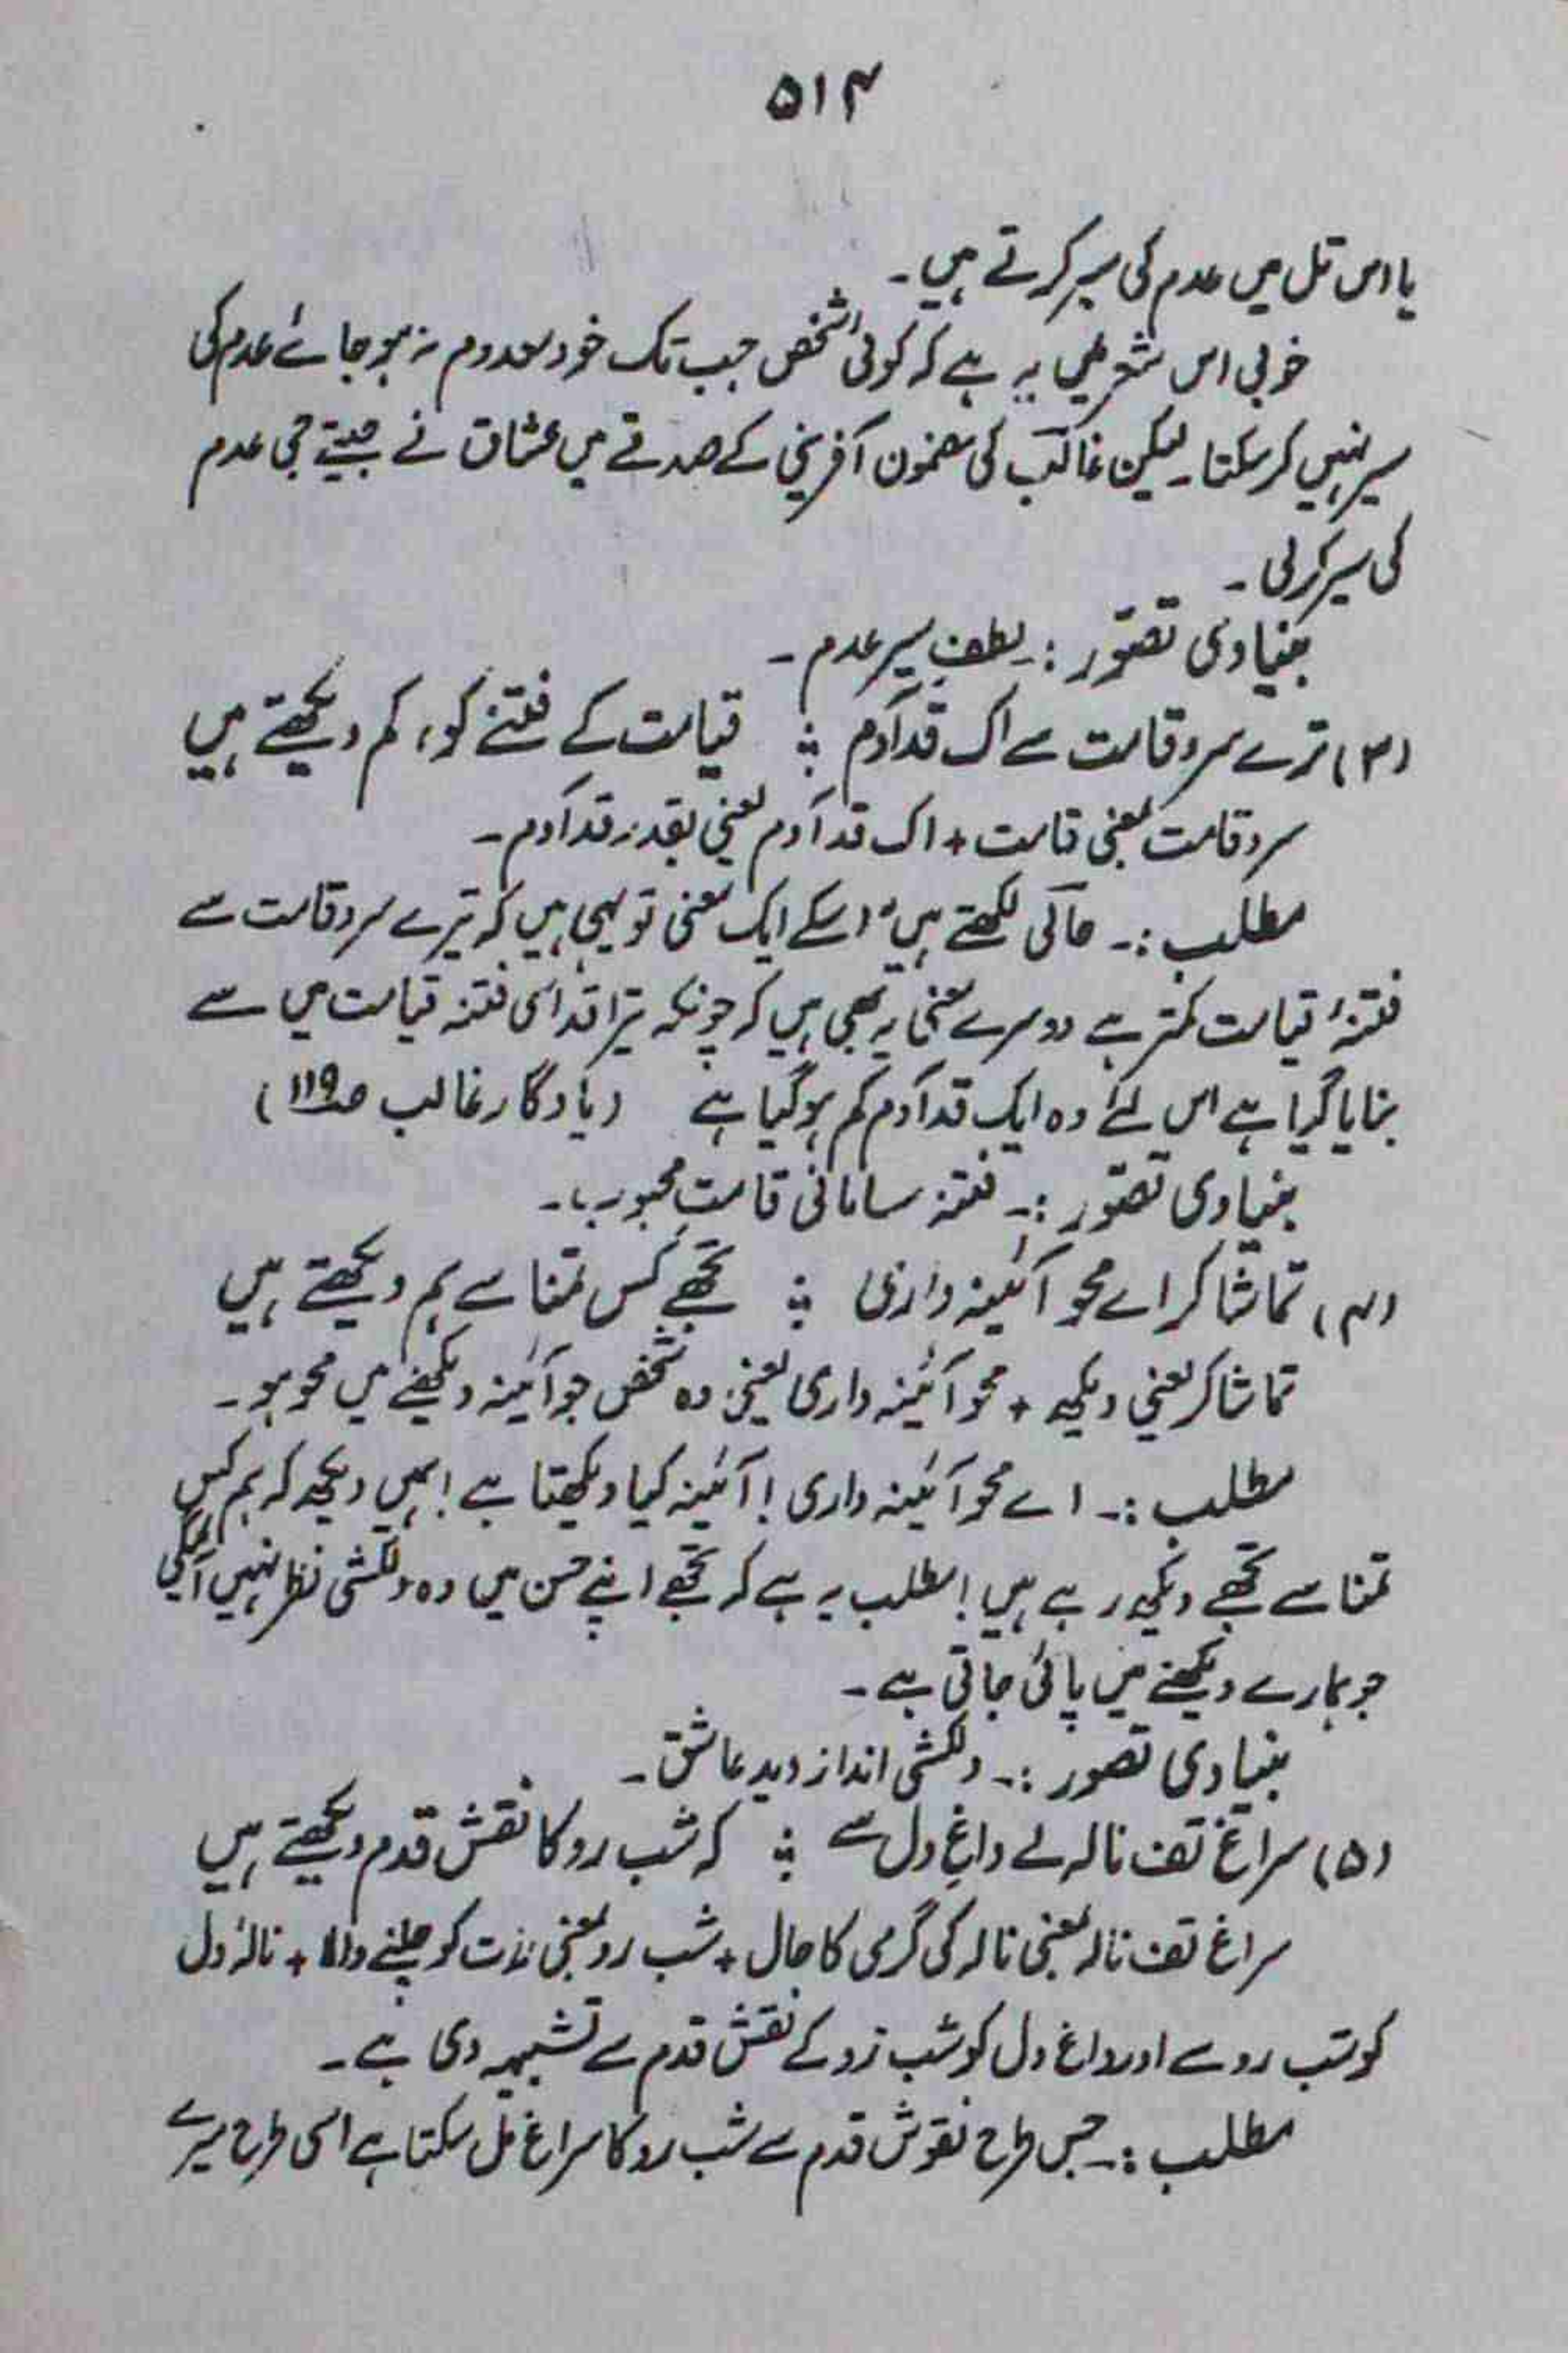 ۵۱۴
یا اس تل میں عدم کی سیر کرتے ہیں۔
خوبی اس شعر میں یہ ہے کہ کوئی شخص جب تک خود معدوم نہ ہو جائے عدم کی
سیر نہیں کر سکتا۔ لیکن غالب کی مضمون آفرینی کے صدقے میں عشاق نے جیتے جی عدم
کی سیر کر لی۔
بنیادی تصوّر :۔ لطفِ سیرِ عدم۔
(۳) ترے سرو قامت سے اک قدِ آدم ؞ قیامت کے فتنے کو، کم دیکھتے ہیں
سرو قامت بمعنی قامت + اک قد آدم یعنی بقدر قد آدم۔
مطلب :۔ حالی لکھتے ہیں "اسکے ایک معنی تو یہی ہیں کہ تیرے سرو قامت سے
فتنۂ قیامت کمتر ہے دوسرے معنی یہ بھی ہیں کہ چونکہ تیرا قد اسی فتنہ قیامت میں سے
بنایا گیا ہے اس لئے وہ ایک قد آدم کم ہو گیا ہے" (یادگار غالب صـ۱۱۹)
بنیادی تصوّر :۔ فتنہ سامانی قامتِ محبوب۔
(۴) تماشا کر اے محو آئینہ داری ؞ تجھے کس تمنا سے ہم دیکھتے ہیں
تماشا کر یعنی دیکھ + محو آئینہ داری یعنی وہ شخص جو آئینہ دیکھنے میں محو ہو۔
مطلب :۔ اے محو آئینہ داری! آئینہ کیا دیکھتا ہے! ہمیں دیکھ کہ ہم کس
تمنا سے تجھے دیکھ رہے ہیں! مطلب یہ ہے کہ تجھے اپنے حسن میں وہ دلکشی نظر نہیں آ سکتی
جو ہمارے دیکھنے میں پائی جاتی ہے۔
بنیادی تصور :۔ دلکشی انداز دید عاشق۔
(۵) سراغ تف نالہ لے داغِ دل سے ؞ کہ شب رو کا نقش قدم دیکھتے ہیں
سراغ تف نالہ بمعنی نالہ کی گرمی کا حال + شب رو بمعنی رات کو چلنے والا + نالۂ دل
کو شب رو سے اور داغ دل کو شب رو کے نقش قدم سے تشبیہہ دی ہے۔
مطلب :۔ جس طرح نقوش قدم سے شب رو کا سراغ مل سکتا ہے اسی طرح میرے